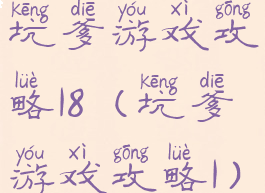 kēng diē yóu xì gōng
坑爹游戏攻
lüè kēng diē
略18（坑爹
yóu xì gōng lüè
游戏攻略1）